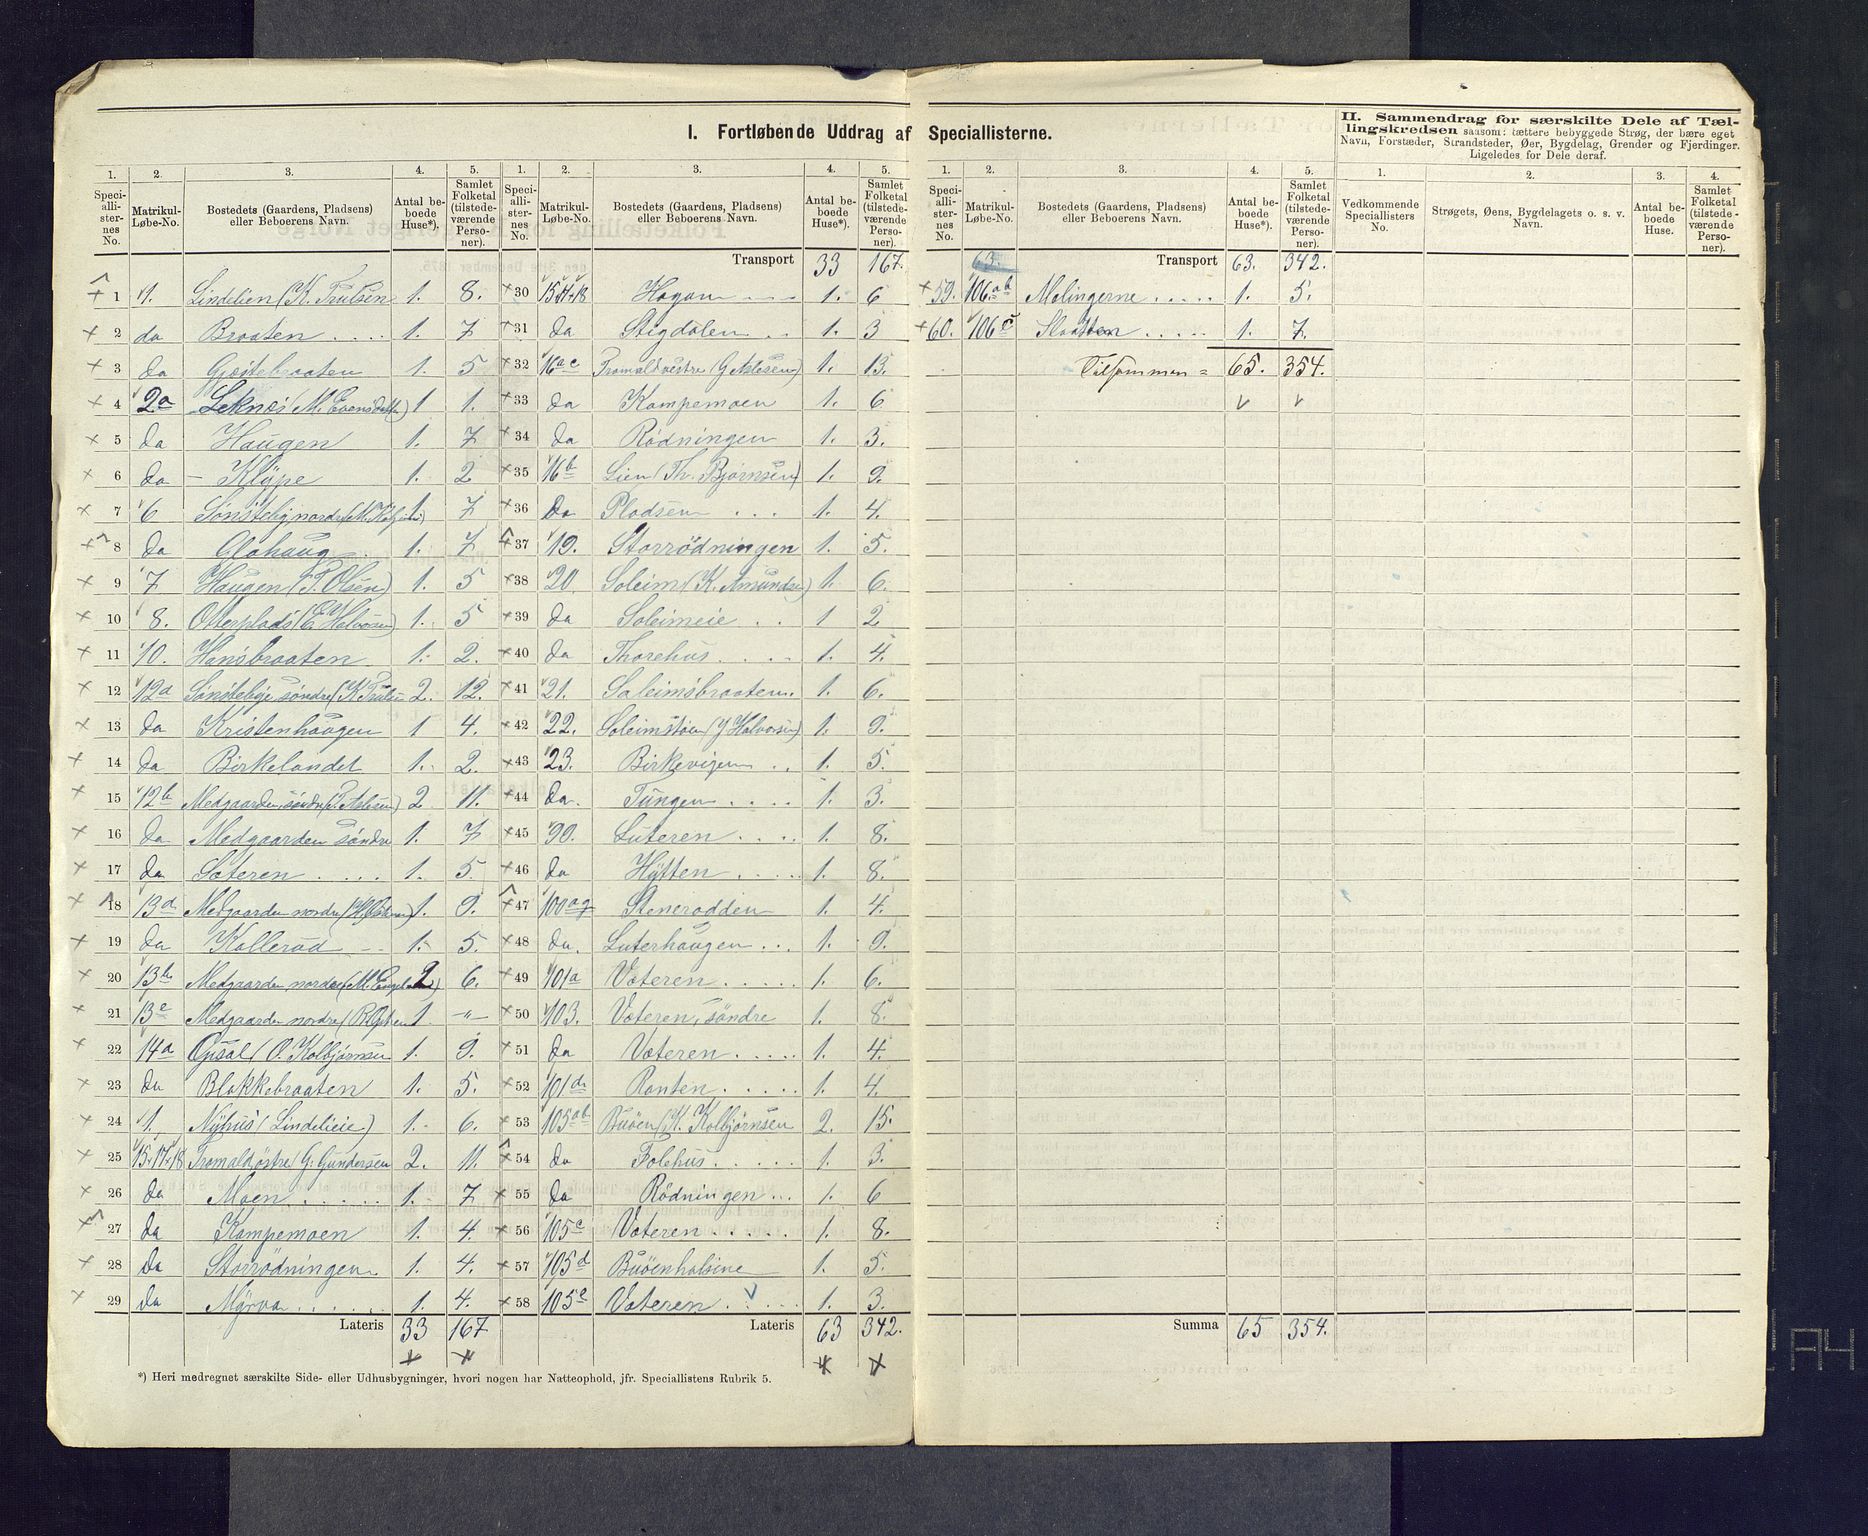 I. Fortløbende Uddrag af Speciallisterne.
II. Sammendrag for særskilte Dele af Tællingskredsen saasom: tættere bebyggede Strøg, der bære eget Navn, Forstæder, Strandsteder, Øer, Bygdelag, Grender og Fjerdinger. Ligeledes for Dele deraf.
1. 2. 3. 4. 5. 1. 2. 3. 4. 5. 1. 2. 3. 4. 5. 1. 2. 3. 4.
Speciallisternes No. Matrikul-Løbe-No. Bostedets (Gaardens, Pladsens) eller Beboerens Navn. Antal beboede Huse*). Samlet Folketal (tilstedeværende Personer).
Speciallisternes No. Matrikul-Løbe-No. Bostedets (Gaardens, Pladsens) eller Beboerens Navn. Antal beboede Huse*). Samlet Folketal (tilstedeværende Personer).
Speciallisternes No. Matrikul-Løbe-No. Bostedets (Gaardens, Pladsens) eller Beboerens Navn. Antal beboede Huse*). Samlet Folketal (tilstedeværende Personer).
Vedkommende Speciallisters No. Strøgets, Øens, Bygdelagets o. s. v. Navn. Antal beboede Huse. Samlet Folketal (tilstedeværende Personer).
1 1. Lindelien (K. Trulsen 1. 8.
2 do Braaten 1. 7
3 do Gjeitebraaten 1. 5
4 2a Leknes (M. Evensdatter) 1 1.
5 do Haugen 1. 7
6 do Klype 1. 2
7 6 Sønsteby nordre 1 7
8 do Olahaug 1. 7
9 7 Haugen (P. Olsen) 1. 5
10 8. Otterplads (E. Halvorsen) 1. 5
11 10. Hansbraaten 1. 2.
12 12a Sønstebye søndre (K. Truls 2. 12.
13 do Kristenhaugen 1 4.
14 do Birkelandet 1. 2.
15 12b Medgaarden søndre (P. Aslesen) 2 11.
16 do Medgaarden søndre 1. 7
17 do Sæteren 1. 5
18 13a Medgaarden nordre 1. 9.
19 do Kollerød 1. 5.
20 13b Medgaarden nordre (M. Engel 2 6.
21 13c Medgaarden nordre 1 -"-
22 14a Opsal (O. Kolbjørnsen 1. 9.
23 do Blakkebraaten 1. 5.
24 1. Nyhus (Lindelieie) 1. 6.
25 15.17.18 Tromaldøstre (G. Gundersen 2. 11.
26 do Moen 1. 7
27 do Kampemoen 1. 4.
28 do Storrødningen 1. 4.
29 do Myrva 1. 4.
Lateris 33 167
Transport 33 167.
30 15.17.18 Hagan 1. 6
31 do Stigdalen 1. 3
32 16ac Tromaldvestre (G Aslesen) 1. 13.
33 do Kampemoen 1. 6
34 do Rødningen 1. 3.
35 16b Lien (Th. Bjørnsen) 1. 9.
36 Do Pladsen 1. 4.
37 19. Storrødningen 1. 5.
38 20. Soleim (K. Amundsen) 1. 6.
39 do Soleimeie 1 2
40 do Thorehus 1. 4.
41 21. Saleimsbraaten 1. 6.
42 22. Soleimstøen (J Halvorsen) 1. 9.
43 23. Birkevigen 1. 5.
44 do. Tungen 1. 3.
45 90. Luteren 1. 8.
46 do Hytten 1. 8.
47 100ag Stenerodden 1. 4.
48 do. Luterhaugen 1. 9.
49 101a Vateren 1. 6.
50 103. Vateren, søndre 1. 8.
51 do Vateren 1. 4.
52 101d Ranten 1. 4.
53 105ab Buøen (K. Kolbjørnsen 2. 15.
54 do Folehus 1. 3.
55 do Rødningen 1. 6
56 105c Vateren 1. 8.
57 105d Buøenhalsine 1. 5.
58 105e Vateren 1. 3.
Lateris 63 342.
63. Transport 63. 342.
59. 106ab Molingerne 1. 5.
60. 106c Slaatten 1. 7.
Tilsammen = 65. 354.
Summa 65 354.
*) Heri medregnet særskilte Side- eller Udhusbygninger, hvori nogen har Natteophold, jfr. Speciallistens Rubrik 5.
A4